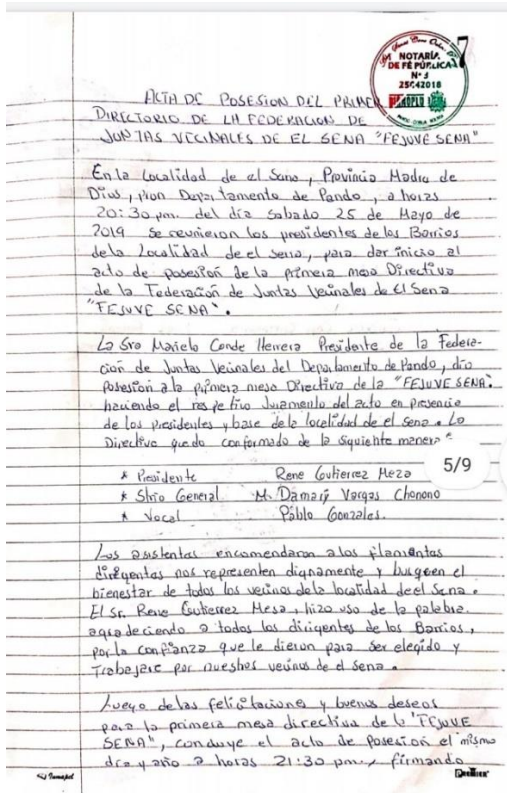 7
NOTARÍA
DE FÉ PÚBLICA
Nº 3
25042018
ACTA DE POSESION DEL PRIMER
DIRECTORIO DE LA FEDERACION DE
JUNTAS VECINALES DE EL SENA "FEJUVE SENA"
En la Localidad de el Sena, Provincia Madre de
Dios, Departamento de Pando, a horas
20:30 pm. del día Sabado 25 de Mayo de
2019 se reunieron los presidentes de los Barrios
de la Localidad de el sena, para dar inicio al
acto de posesión de la primera mesa Directiva
de la Federación de Juntas Vecinales de El Sena
"FEJUVE SENA".
La Sra Mariela Conde Herrera Presidente de la Federa-
ción de Juntas Vecinales del Departamento de Pando, dio
Posesión a la primera mesa Directiva de la "FEJUVE SENA".
haciendo el respetivo Juramento del acto en presencia
de los presidentes y base de la localidad de el sena. La
Directiva quedo conformado de la siguiente manera:
5/9
* Presidente Rene Gutierrez Meza
* Strio General M. Damary Vargas Chonono
* Vocal Pablo Gonzales.
Los asistentes encomendaron a los flamantes
dirigentas nos representen dignamente y busquen el
bienestar de todos los vecinos de la localidad de el Sena.
El Sr. Rene Gutierrez Mesa, hizo uso de la palabra.
agradeciendo a todos los dirigentes de los Barrios,
por la confianza que le dieron para ser elegido y
Trabajare por nuestros vecinos de el Sena.
Luego de las felicitaciones y buenos deseos
para la primera mesa directiva de la "FEJUVE
SENA", concluye el acto de Posesión el mismo
dia y año a horas 21:30 pm., firmando